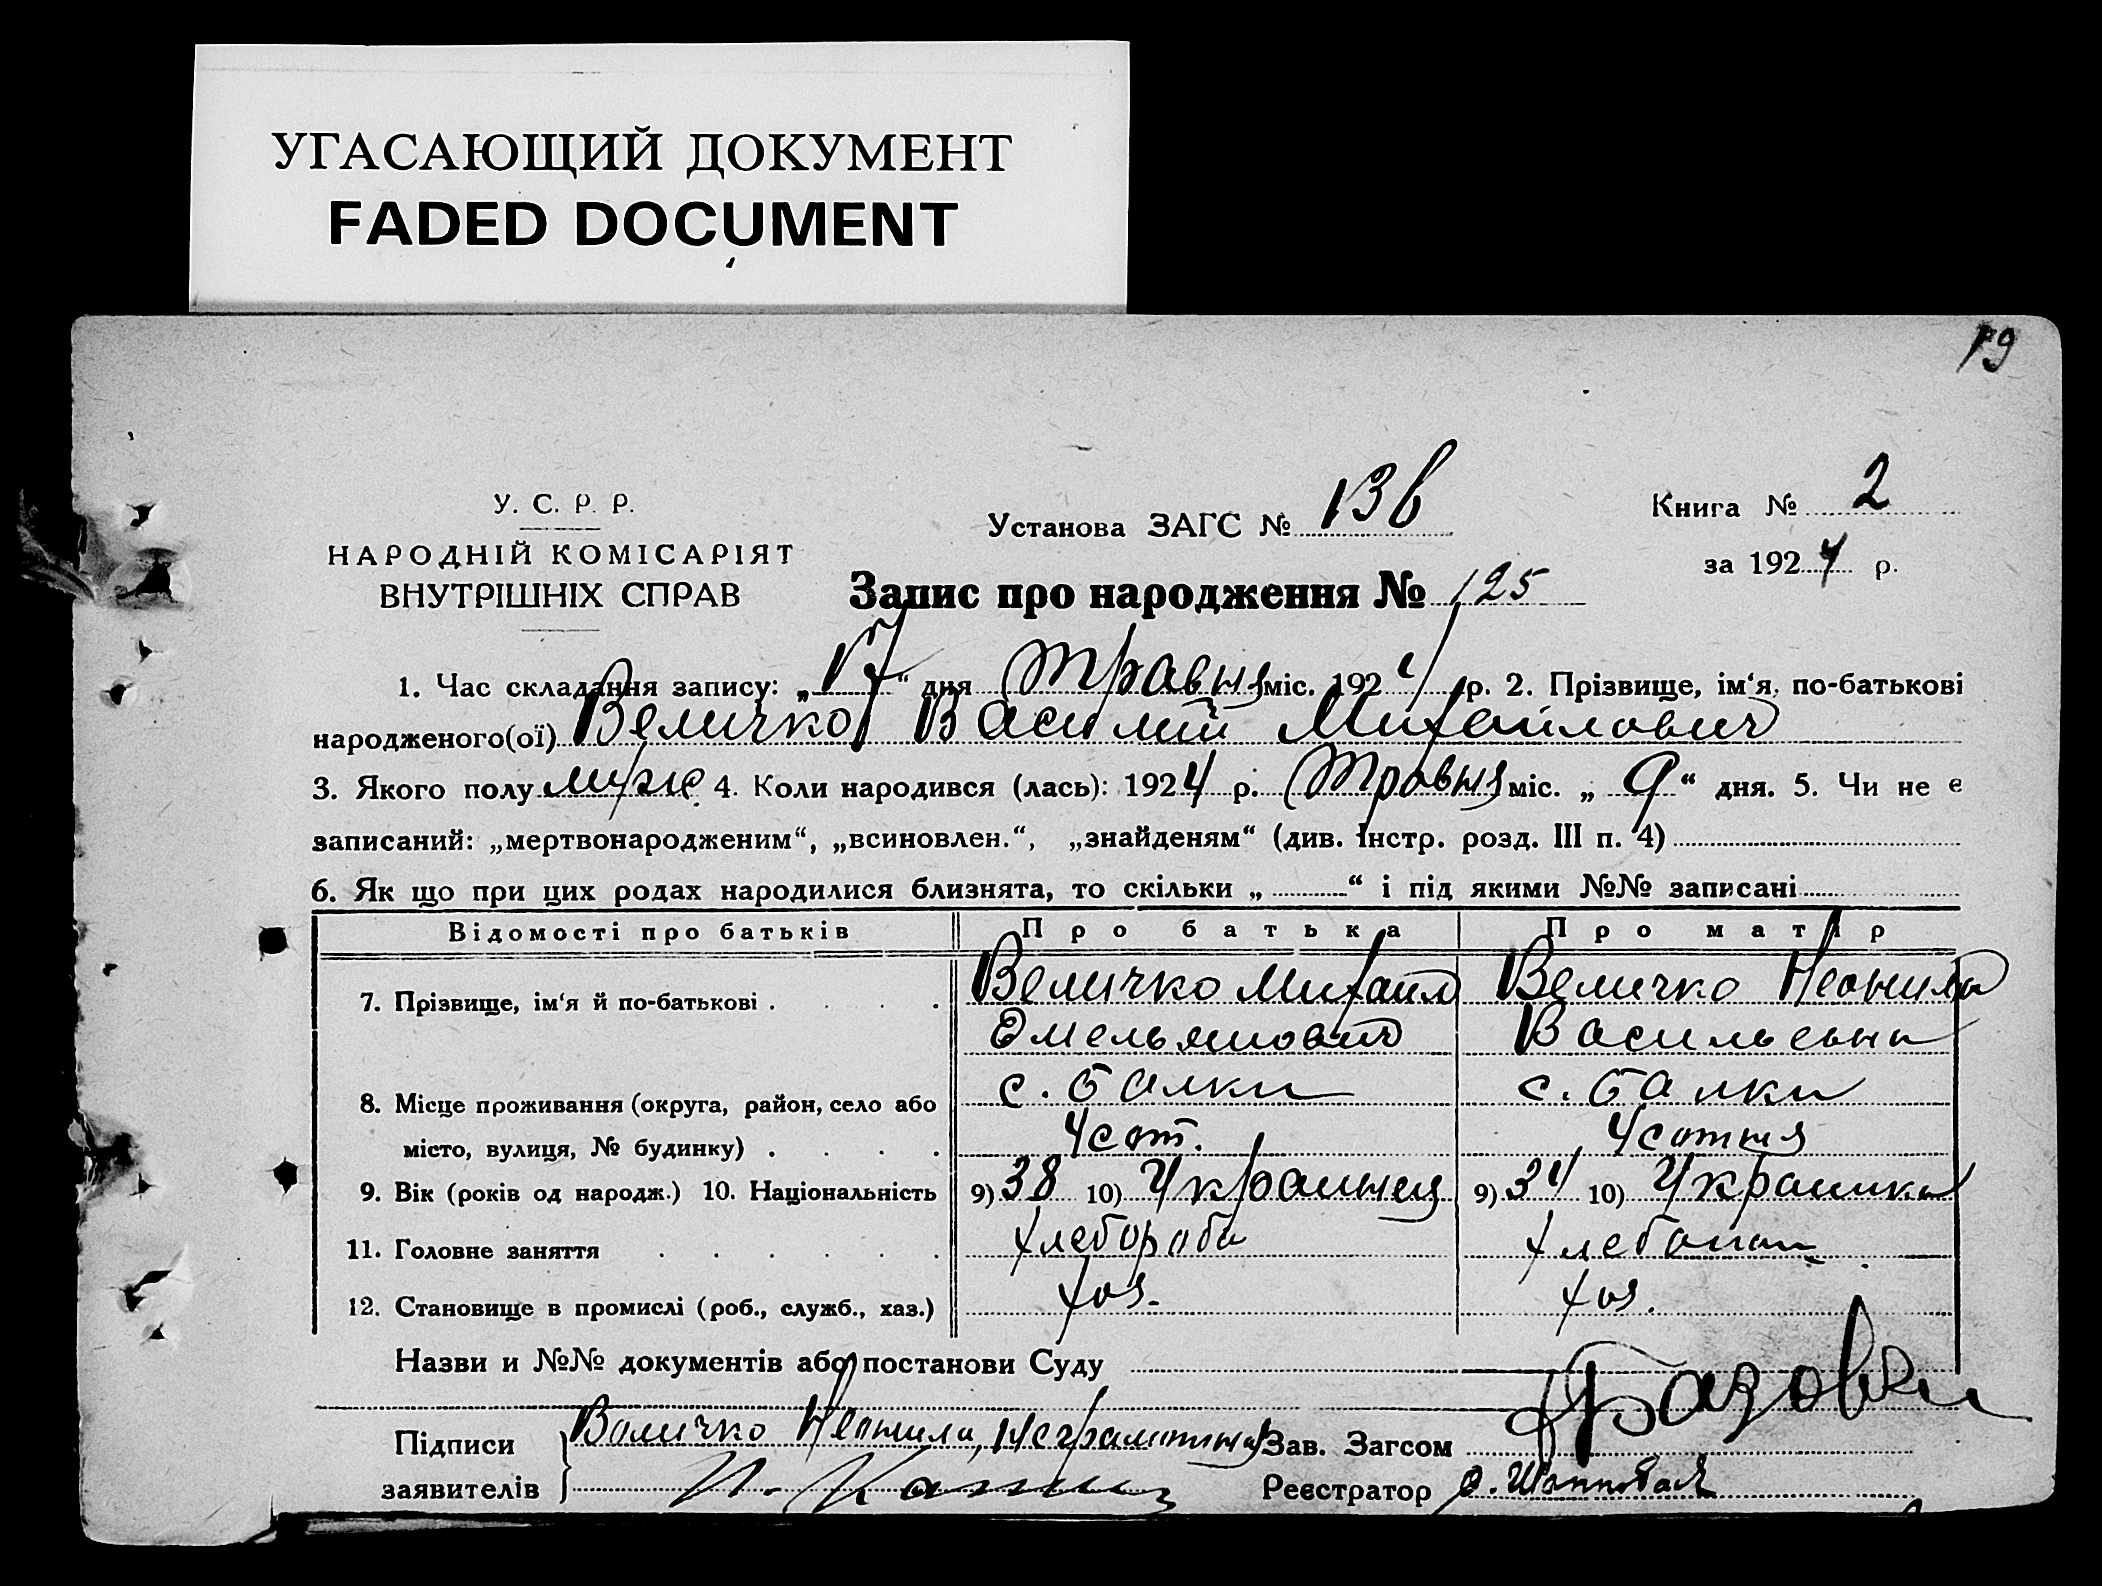 УГАСАЮЩИЙ ДОКУМЕНТ
FADED DOCUMENT
У. С. Р. Р.
НАРОДНІЙ КОМІСАРІЯТ
ВНУТРІШНІХ СПРАВ
Установа ЗАГС №
Книга № 2
за 1924 р.
Запис про народження № 125
1. Час складання запису: „17“ дня Травня міс. 1924 р. 2. Прізвище, ім‘я, по-батькові
народженого(ої) Величко Василий Михайлович
3. Якого полу муж. 4. Коли народився (лась): 1924 р. Травня міс. „ 9 “ дня. 5. Чи не є
записаний: „мертвонародженим“, „всиновлен.“, „знайденям“ (див. Інстр. розд. III п. 4)
6. Як що при цих родах народилися близнята, то скільки „ “ і під якими №№ записані
Відомості про батьків Про батька Про матір
7. Прізвище, ім‘я й по-батькові . . . . Величко Михаил Величко Неонила
Емельянович Васильевна
8. Місце проживання (округа, район, село або с. Балки с. Балки
місто, вулиця, № будинку) . . . . 4 сот. 4 сотня
9. Вік (років од народж.) 10. Національність 9) 38 10) Украинец 9) 34 10) Украинка
11. Головне заняття . . . . . . хлебороб
12. Становище в промислі (роб., служб., хаз.) хоз. хоз.
Назви и №№ документів або постанови Суду
Підписи Величко Неонила, неграмотная Зав. Загсом
заявителів Реєстратор